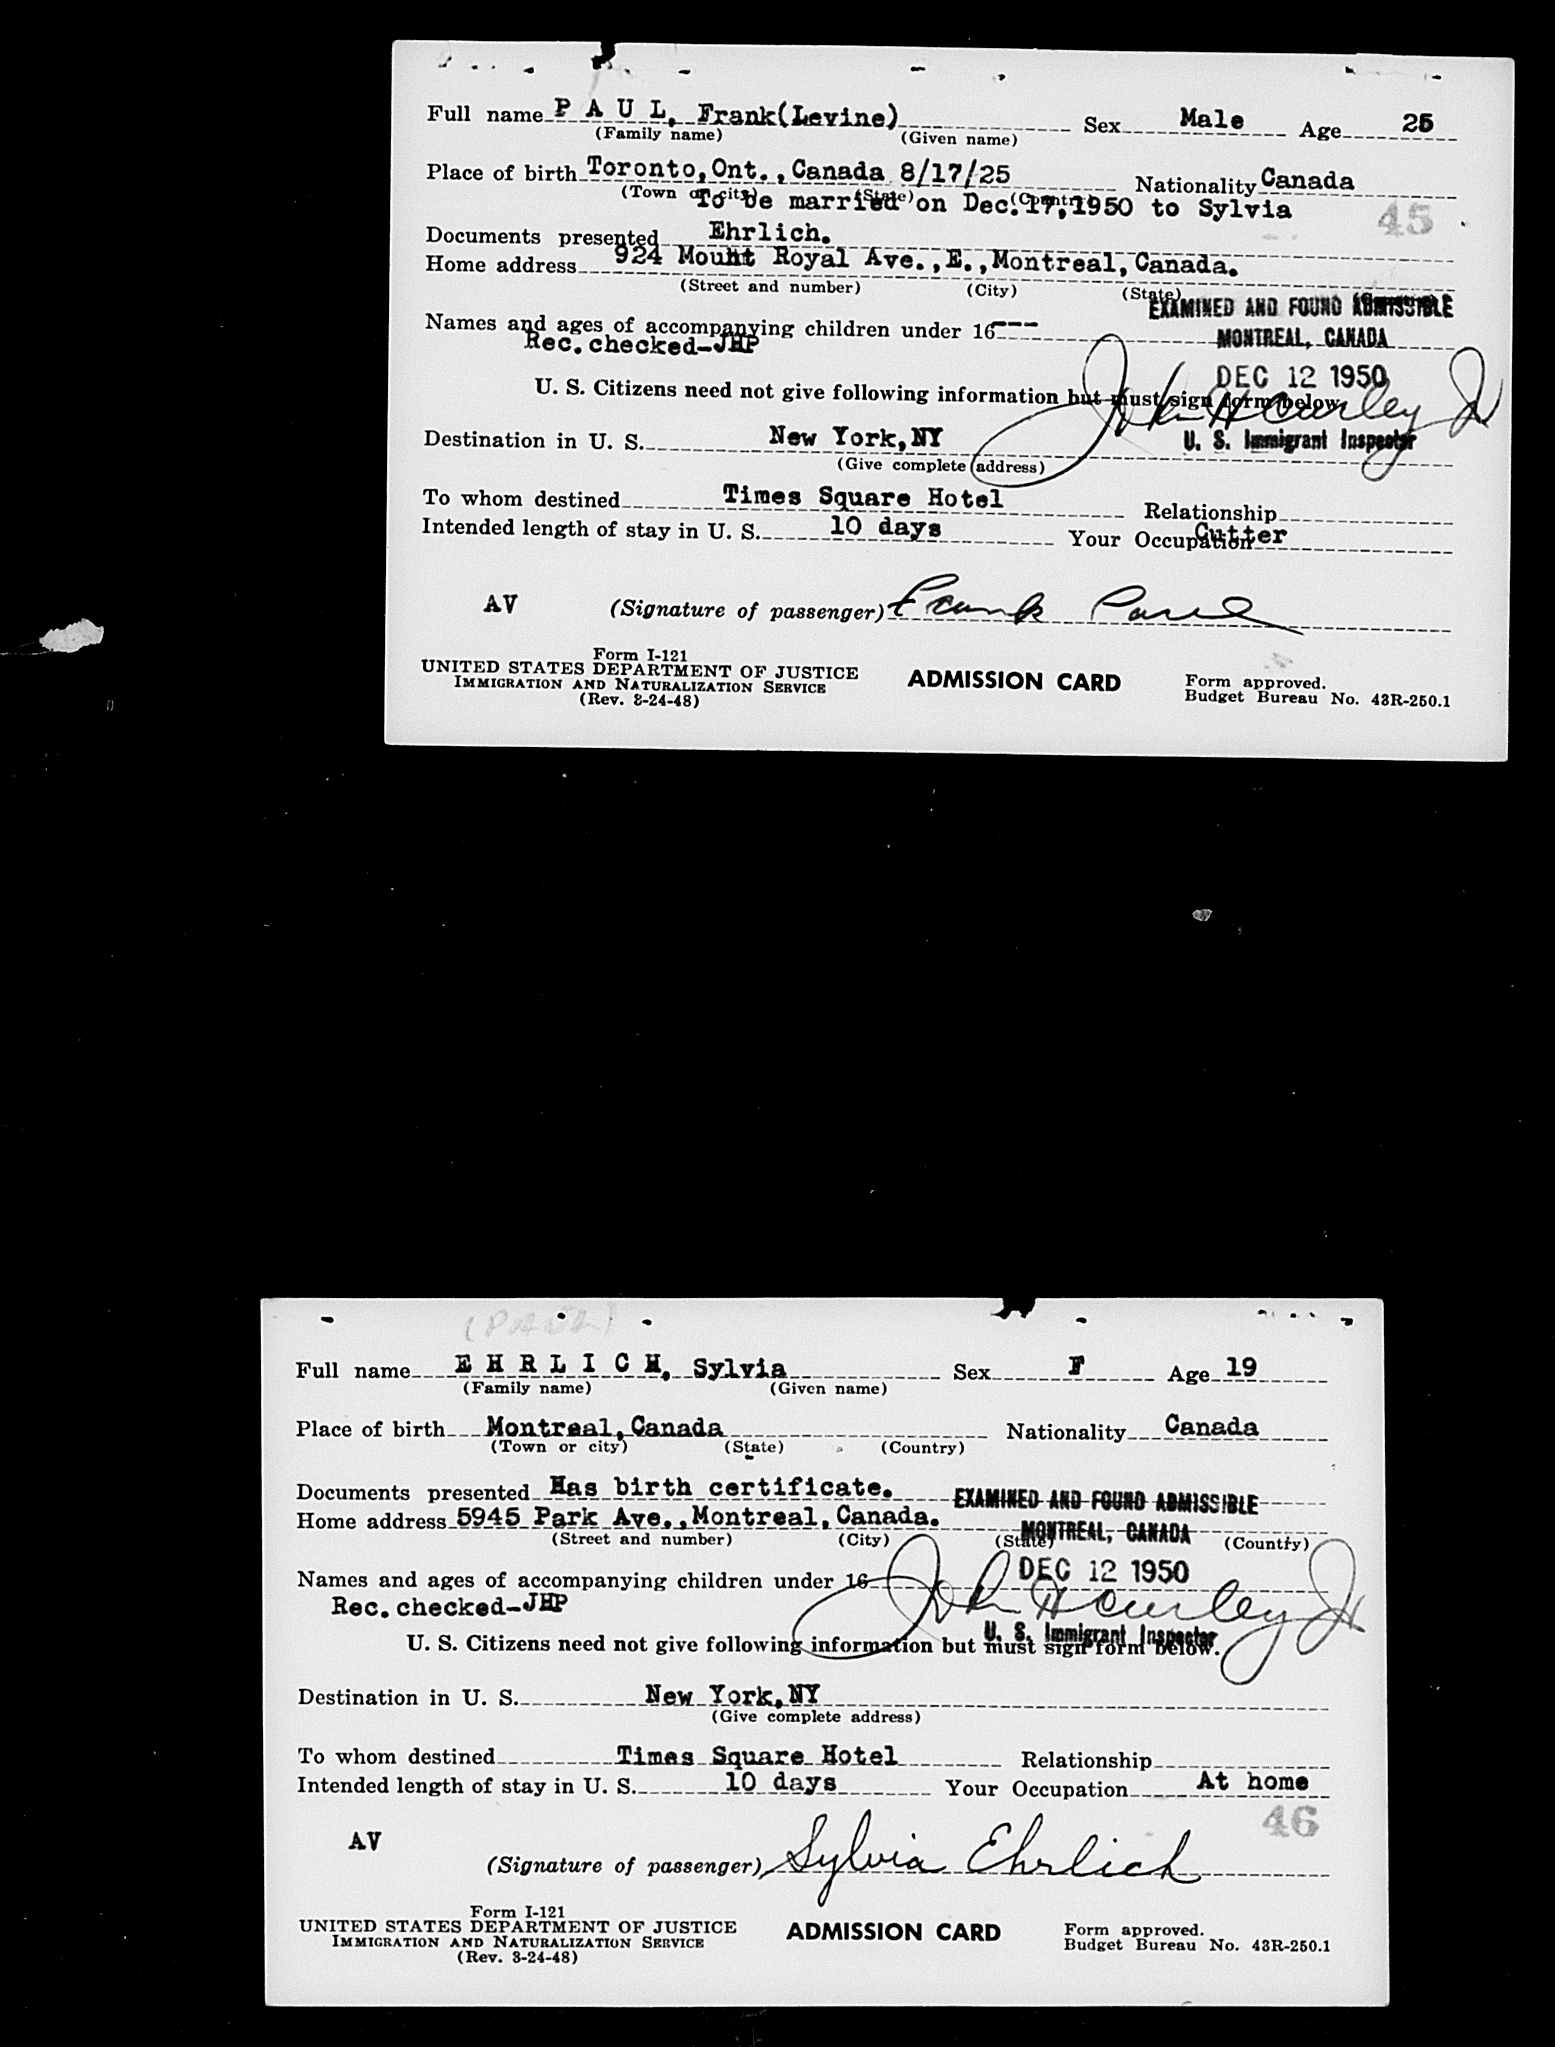 Full name P A U L, Frank(Levine) Sex Male Age 25
(Family name) (Given name)
Place of birth Toronto, Ont., Canada 8/17/25 Nationality Canada
(Town or city) (State) (Country)
To be married on Dec. 17, 1950 to Sylvia
45
Documents presented Ehrlich.
Home address 924 Mount Royal Ave., E., Montreal, Canada.
(Street and number) (City) (State)
EXAMINED AND FOUND ADMISSIBLE
Names and ages of accompanying children under 16 ---
MONTREAL, CANADA
Rec. checked-JHP
DEC 12 1950
U. S. Citizens need not give following information but must sign form below.
John H Curley Jr
Destination in U. S. New York, NY
U. S. Immigrant Inspector
(Give complete address)
To whom destined Times Square Hotel Relationship
Intended length of stay in U. S. 10 days Your Occupation Cutter
AV (Signature of passenger) Frank Paul
Form I-121
UNITED STATES DEPARTMENT OF JUSTICE
IMMIGRATION AND NATURALIZATION SERVICE
(Rev. 3-24-48)
ADMISSION CARD
Form approved.
Budget Bureau No. 43R-250.1
Full name E H R L I C H, Sylvia Sex F Age 19
(Family name) (Given name)
Place of birth Montreal, Canada Nationality Canada
(Town or city) (State) (Country)
Documents presented Has birth certificate.
EXAMINED AND FOUND ADMISSIBLE
Home address 5945 Park Ave., Montreal, Canada.
MONTREAL, CANADA
(Street and number) (City) (State) (Country)
DEC 12 1950
Names and ages of accompanying children under 16
John H Curley Jr
Rec. checked-JHP
U. S. Immigrant Inspector
U. S. Citizens need not give following information but must sign form below.
Destination in U. S. New York, NY
(Give complete address)
To whom destined Times Square Hotel Relationship
Intended length of stay in U. S. 10 days Your Occupation At home
46
AV (Signature of passenger) Sylvia Ehrlich
Form I-121
UNITED STATES DEPARTMENT OF JUSTICE
IMMIGRATION AND NATURALIZATION SERVICE
(Rev. 3-24-48)
ADMISSION CARD
Form approved.
Budget Bureau No. 43R-250.1